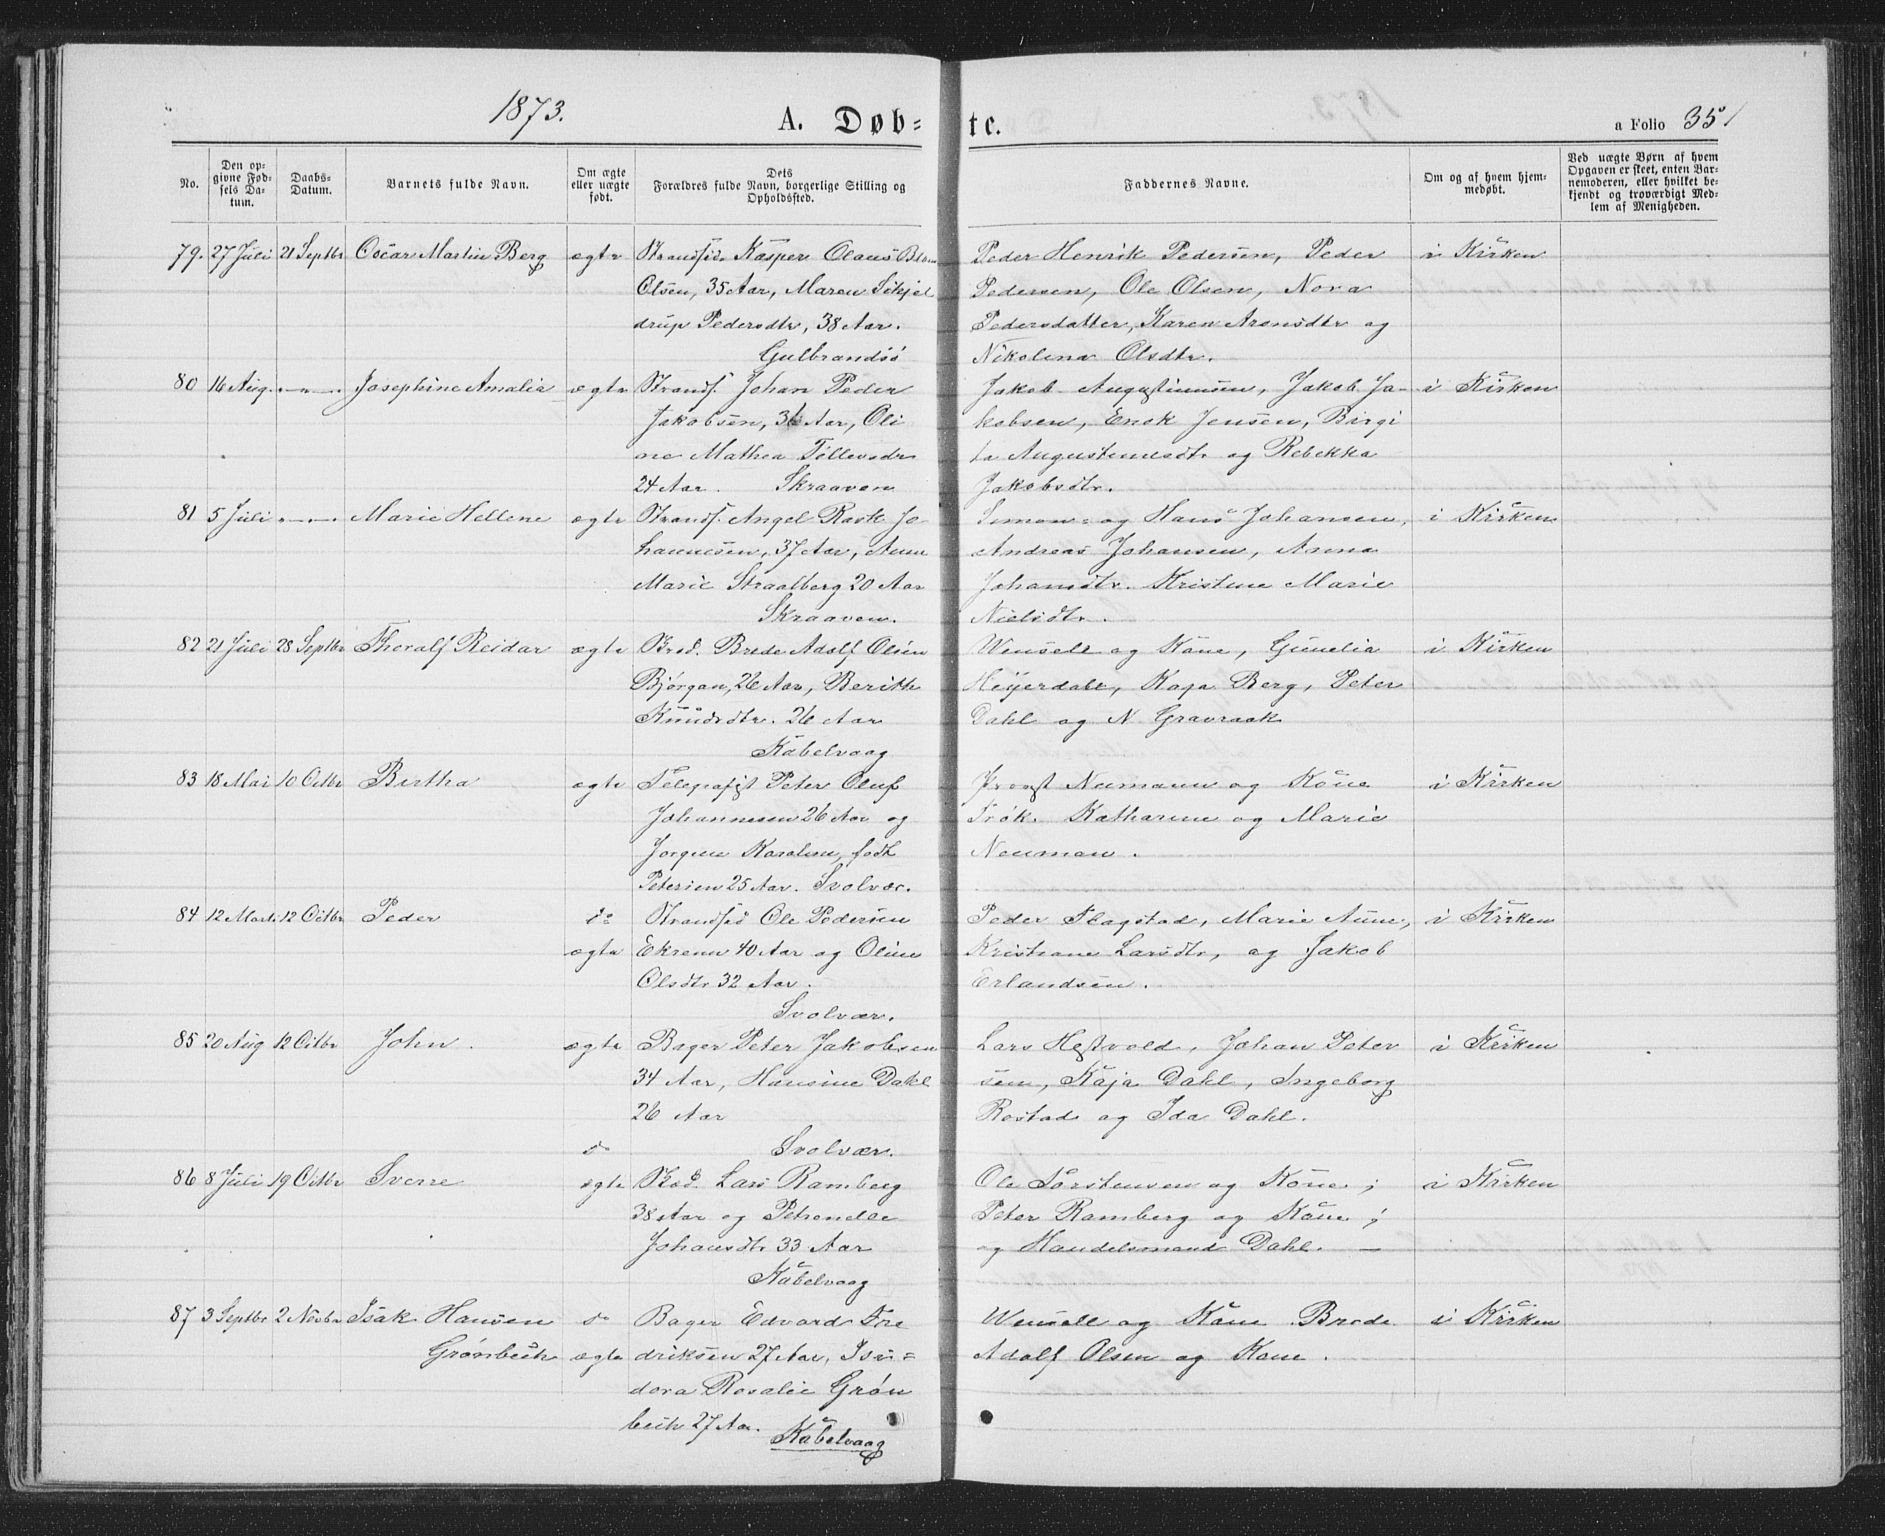 1873.
A. Døb=
te.
a Folio 35
No.
Den op=
givne Fød=
sels Da=
tum.
Daabs=
Datum.
Barnets fulde Navn.
Om ægte
eller uægte
født.
Dets
Forældres fulde Navn, borgerlige Stilling og
Opholdssted.
Faddernes Navne.
Om og af hvem hjem=
medøbt.
Ved uægte Børn af hvem
Opgaven er skeet, enten Bar=
nemoderen, eller hvilket be=
kjendt og troværdigt Med=
lem af Menigheden.
79. 27 Juli 21 Septbr Oscar Martin Berg ægte Strandsid. Kasper Olaus
Olsen, 35 Aar, Maren Schjel
drup Pedersdtr, 38 Aar.
Gulbrandsö
Peder Henrik Pedersen, Peder
Pedersen, Ole Olsen, Nora
Pedersdatter, Karen Aronsdtr og
Nikolina Olsdtr.
i Kirken
80 16 Aug. -"- Josephine Amalia ægte Strands. Johan Peder
Jakobsen, 36 Aar, Oli
ne Mathea Tollevsdr
24 Aar. Skraaven
Jakob Augustinusen, Jakob Ja-
kobsen, Enok Jensen, Birgi
ta Augustinusdtr og Rebekka
Jakobsdtr.
i Kirken
81 5 Juli -"- Marie Hellene ægte Strands. Angel Rask Jo
hannesen, 37 Aar, Anne
Marie Straalberg 20 Aar
Skraaven.
Simon= og Hans Johansen,
Andreas Johansen, Anna
Johansdtr. Kristine Marie
Nielsdtr.
i Kirken
82 21 Juli 28 Septbr Thoralf Reidar ægte Brede Adolf Olsen
Bjørgan, 26 Aar, Berith
Knudsdtr. 26 Aar
Kabelvaag
Wensell og Kone, Gunelia
Heÿerdahl, Kaja Berg, Peter
Dahl og N Gravraak
i Kirken
83 18 Mai 10 Octbr Bertha ægte Telegrafist Peter Oluf
Johannesen 26 Aar og
Jørgine Karoline, født
Petersen 25 Aar. Svolvær.
Provst Neumann og Kone
Frøk. Katharine og Marie
Neuman.
i Kirken
84 12 Marts 12 Octbr Peder do Strandsid Ole Pedersen
ægte Ekrenn 40 Aar og Oline
Olsdtr 32 Aar.
Svolvær.
Peder Flagstad, Marie Aune,
Kristiane Larsdtr, og Jakob
Erlandsen.
i Kirken
85 20 Aug 12 Octbr John. ægte Bager Peter Jakobsen
34 Aar, Hansine Dahl
26 Aar
Svolvær.
Lars Hestvold, Johan Peter
sen, Kaja Dahl, Ingeborg
Rostad og Ida Dahl.
i Kirken
do
86 8 Juli 19 Octbr Sverre ægte Lars Ramberg
38 Aar og Petronelle
Johansdtr 33 Aar
Kabelvaag
Ole Torstensen og Kone;
Peter Ramberg og Kone;
og Handelsmand Dahl. —
i Kirken
87 3 Septbr 2 Novbr Isak Hansen do Bager Edvard Fre
Grønbech ægte driksen 27 Aar, Isi=
dora Rosalie Grøn
bech 27 Aar.
Kabelvaag
Wensell og Kone. Brede
Adolf Olsen og Kone.
i Kirken